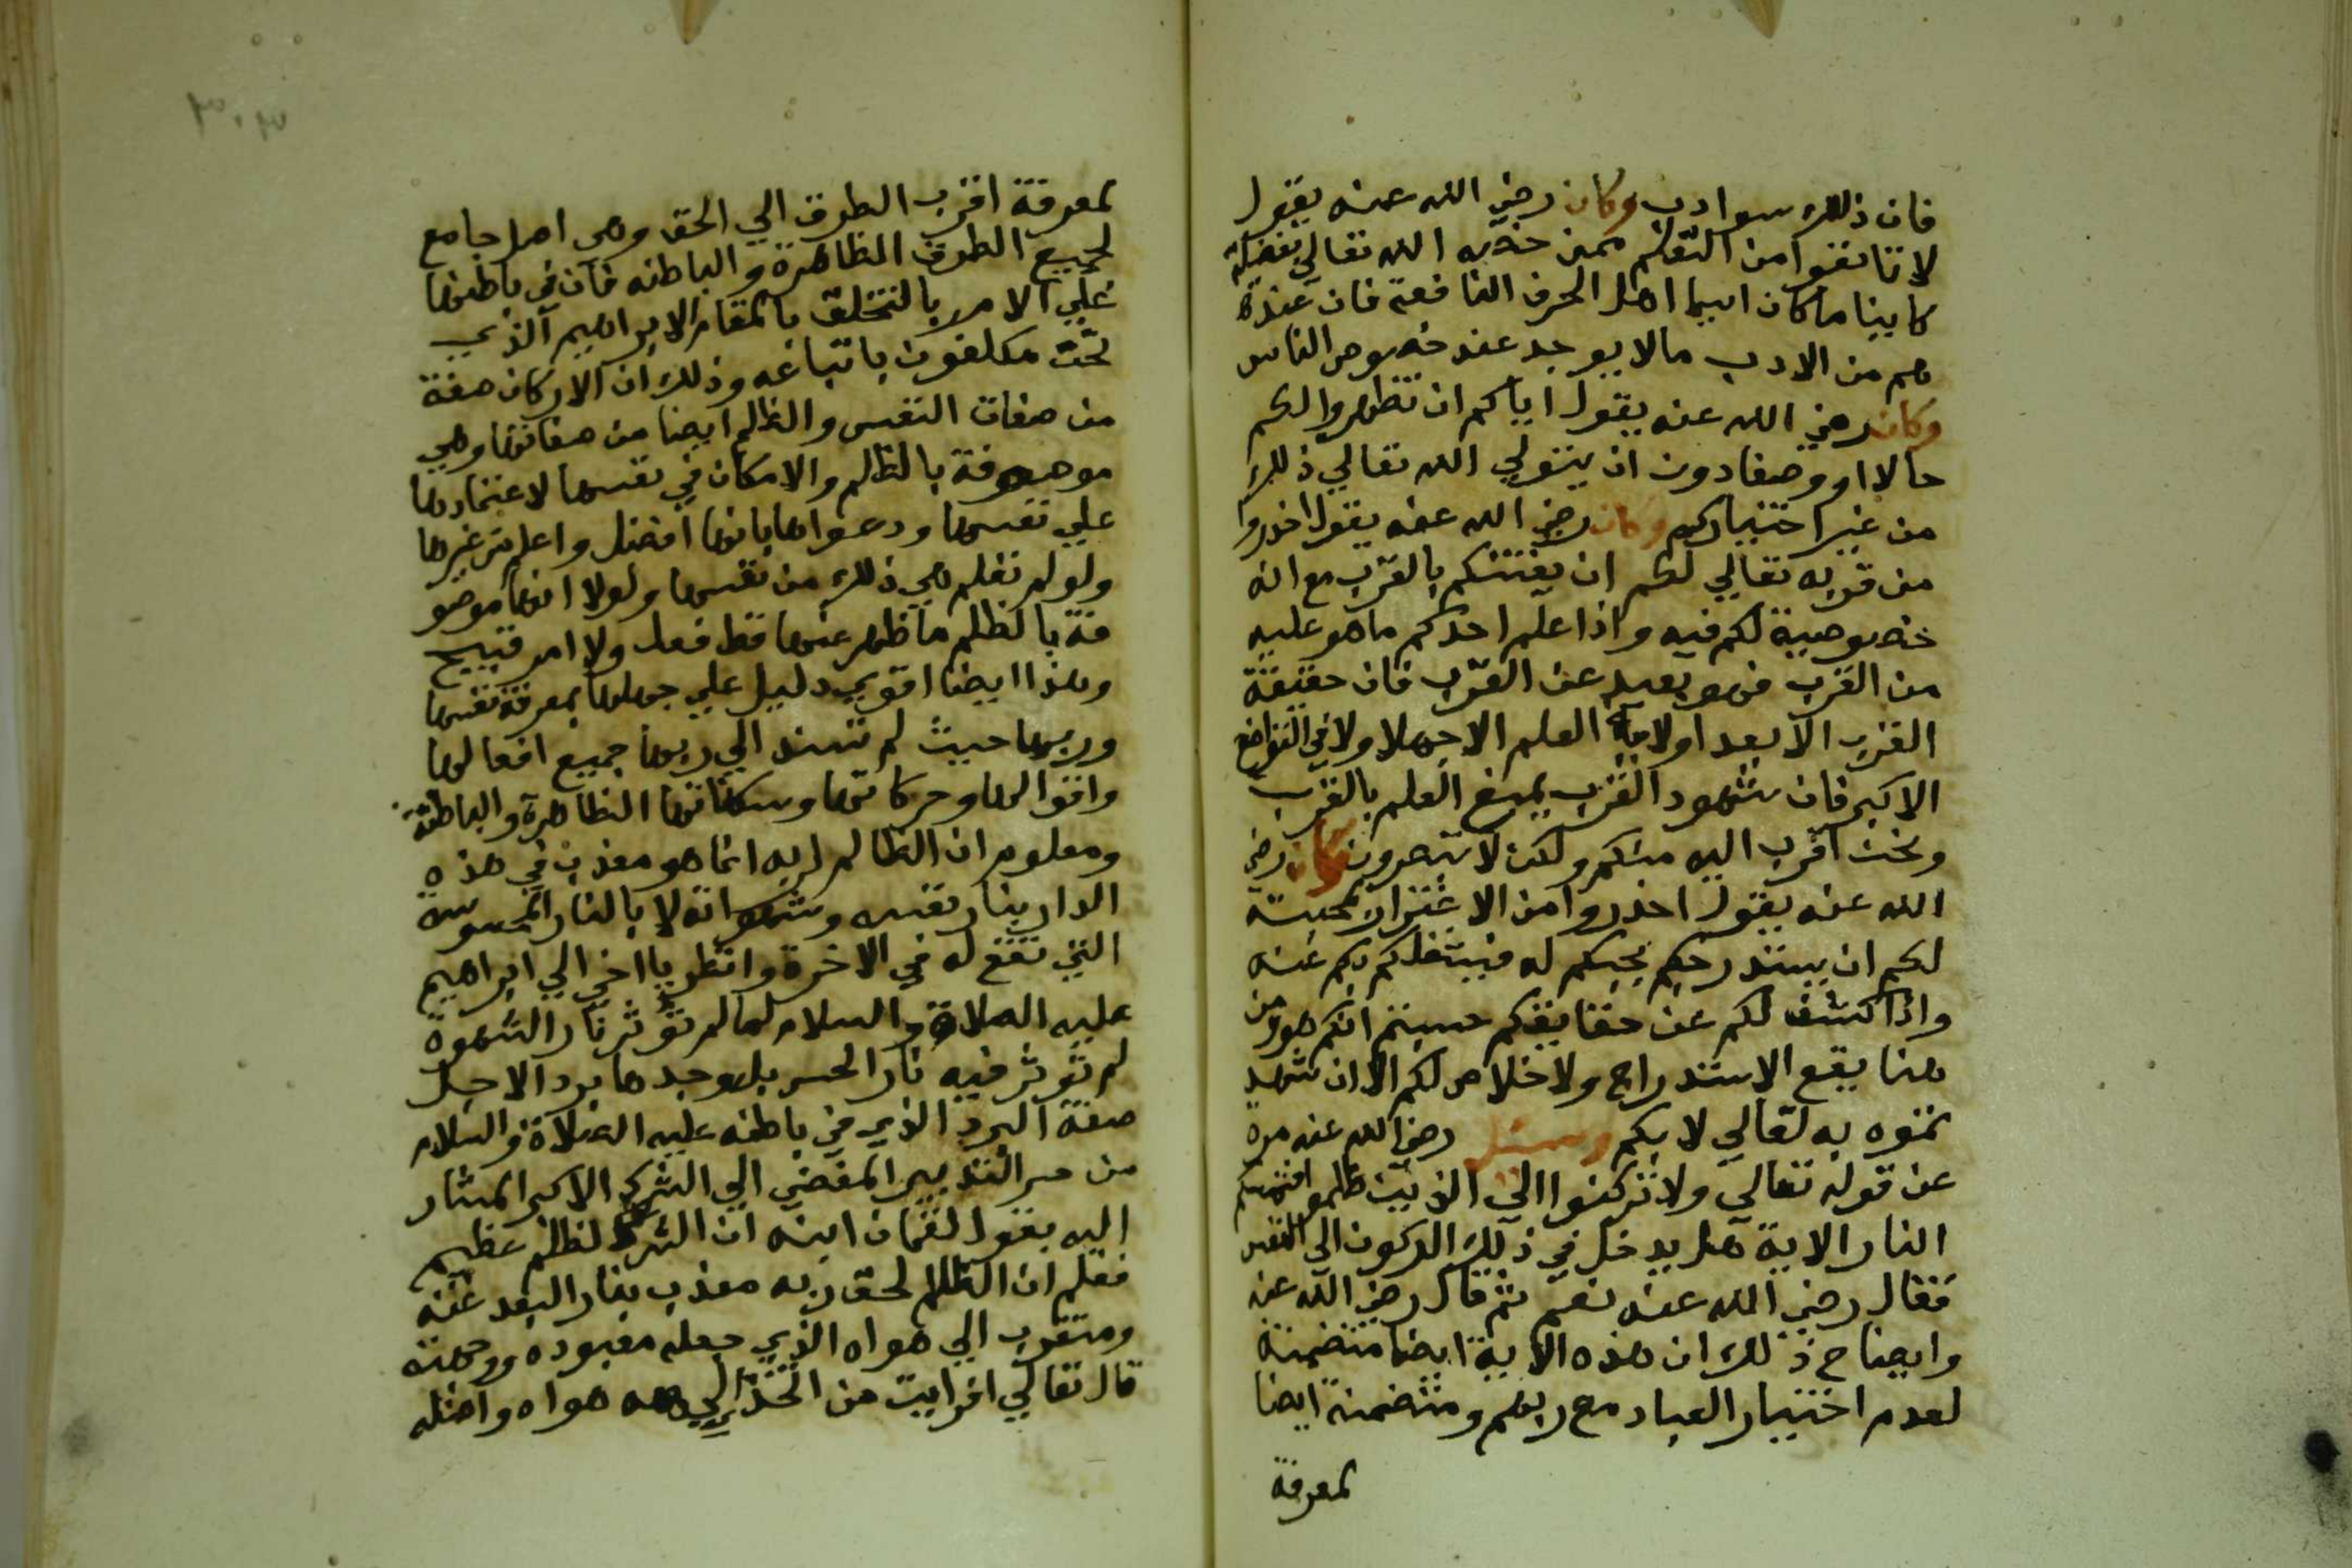 فان ذلك سوا ادب وكان رضي الله عنه يقول
لا تانفوا من التعلم ممن خصه الله تعالي بفضيلة
كاينا ما كان لاسيما اهل الحرف النافعة فان عندهم
من الادب ما لا يوجد عند خصوص الناس
وكان رضي الله عنه يقول اياكم ان تظهروا لكم
حالا او وصفا دون ان يتولي الله تعالي ذلك
من غير اختياركم وكان رضي الله عنه يقول احذروا
من قربه تعالي لكم ان يفتنكم بالقرب مع انه
خصوصية لكم فيه واذا علم احدكم ما هو عليه
من القرب فهو بعيد عن القرب فان حقيقة
القرب الابعد اولا العلم الا جهلا ولا في التواضع
الاكبر فان شهود القرب يمنع العلم بالقرب
ونحن اقرب اليه منكم ولكن لا تبصرون وكان رضي
الله عنه يقول احذروا من الاغترار بمحبته
لكم ان يستدرجكم بحبكم له فيشغلكم بكم عنه
واذا كشف لكم عن حقايقكم حسبتم انكم هو ومن
هنا يقع الاستدراج ولا خلاص لكم الا ان شهد
تموه به تعالي لا بكم وسئل رضي الله عنه مرة
عن قوله تعالي ولا تركنوا الي الذين ظلموا فتمسكم
النار الاية هل يدخل في ذلك الركون الي النفس
فقال رضي الله عنه نعم ثم قال رضي الله عنه
وايضاح ذلك ان هذه الاية ايضا متضمنة
لعدم اختيار العباد مع ربهم ومتضمنة ايضا
لمعرفة
لمعرفة اقرب الطرق الي الحق وهي اصل جامع
لجميع الطرق الظاهرة والباطنه فان في باطنها
علي الامر بالتخلق بالمقام الابراهيم الذي
نحن مكلفون باتباعه وذلك ان الاركان صفة
من صفات النفس والظلم ايضا من صفاتها وهي
موصوفة بالظلم والامكان في نفسها لاعتمادها
علي نفسها ودعواها بانها افضل واعلم من غيرها
ولو لم تعلم هي ذلك من نفسها ولولا انها موصو
فة بالظلم ما ظهر عنها قط فعل ولا امر قبيح
وهذا ايضا اقوي دليل علي جهلها بمعرفة نفسها
وربها حيث لم تسند الي ربها جميع افعالها
واقوالها وحركاتها وسكناتها الظاهرة والباطنة
ومعلوم ان الظالم لربه انما هو معذب في هذه
الدار بنار نفسه وشهواته لا بالنار المحسوسة
التي تقع له في الاخرة وانظر يا اخي الي ابراهيم
عليه الصلاة والسلام لما لم تؤثر نار الشهوة
لم تؤثر فيه نار الحس بل وجدها بردا لاجل
صفة البرد الذي في باطنه عليه الصلاة والسلام
من حر التدبير المفضي الي الشرك الاكبر المشار
اليه بقول لقمان ابنه ان الشرك لظلم عظيم
فعلم ان الظالم لحق ربه معذب بنار البعد عنه
ومتقرب الي هواه الذي جعله معبوده ووجهته
قال تعالي افرايت من اتخذ الهه هواه واضله